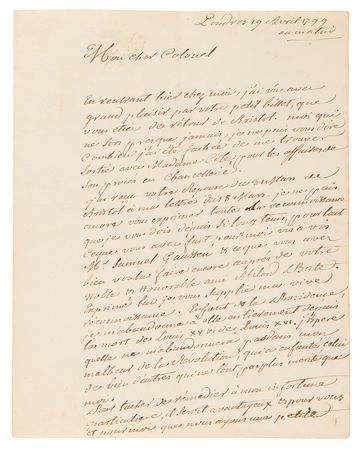 Londres 19 Avril 1799
au matin
Mon cher Colonel
En rentrant hier chez moi, j'ai vu avec
grand plaisir par votre petit billet, que
vous etiez de retour de Bristol. moi qui
ne sors presque jamais, je ne puis vous dire
combien j'ai été fachée de me trouver
sortie avec Madame Cole, pour les affaires de
son procès en Chancellerie.
j'ai reçu votre Reponse du 31 Mars de
Bristol à ma lettre du 8 Mars. je ne puis
encore vous exprimer toute la reconnoissance
que je vous dois depuis si longtems, pour tout
ce que vous avez fait pour moi vis a vis
Mr. Samuel Gaussen & ce que vous avez
bien voulu faire encore auprès de votre
noble & honorable ami Milord Bute.
Exprimez lui je vous supplie ma vive
reconnoissance. Enfant de la Providence
je m'abandonne à elle entierement depuis
la mort de Louis XV & de Louis XVI. j'espere
quelle ne m'abandonnera pas dans mon
malheur de la Revolution, qui a enfanté celui
de bien d'autres qui ne l'ont pas plus merité que
moi.
Pour tacher de rémédier à mon infortune
particuliere, il seroit avantageux & pour vous
et pour moi que nous ayons une petite